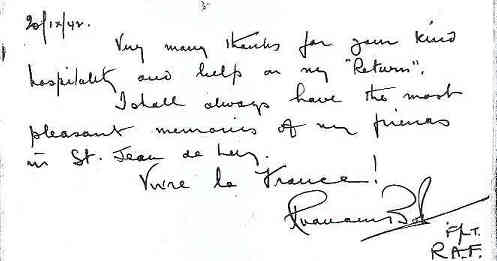 20/12/42.
Very many thanks for your kind
hospitality and help on my "Return".
I shall always have the most
pleasant memories of my friends
in St. Jean de Luz.
Vivre la France!
F/LT.
R.A.F.